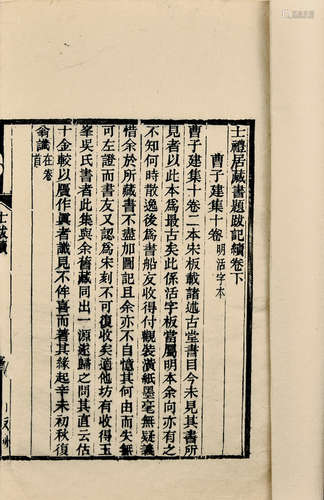 士禮居藏書題跋記續卷下
曹子建集十卷 明活字本
曹子建集十卷二本宋板載諸述古堂書目今未見其書所
見者以此本爲最古矣此係活字板當屬明本余向亦有之
不知何時散逸後爲書船友收得付觀裝潢紙墨毫無疑義
惜余於所藏書不盡加圖記且余亦不自憶其何由而失無
可左證而書友又認爲宋刻不可復收矣適他坊有收得玉
峯吳氏書者此集與余舊藏同出一源遂歸之問其直云估
十金較以贋作眞者識見不侔喜而著其緣起辛未初秋復
翁識 在卷首
士跋續